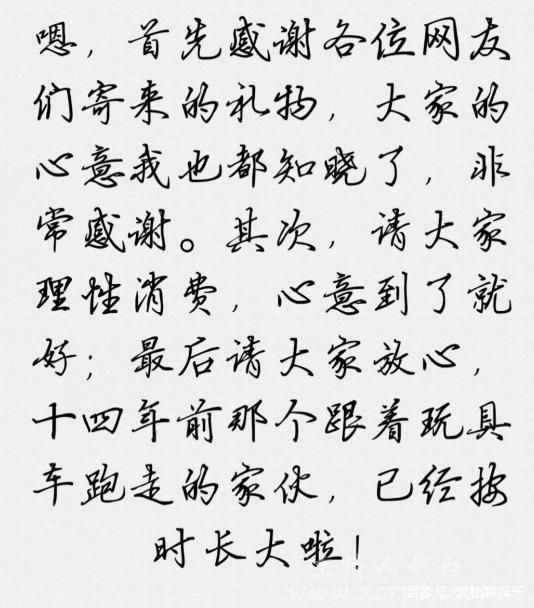 嗯，首先感谢各位网友
们寄来的礼物，大家的
心意我也都知晓了，非
常感谢。其次，请大家
理性消费，心意到了就
好；最后请大家放心，
十四年前那个跟着玩具
车跑走的家伙，已经按
时长大啦！
百家号/岩松聊娱乐